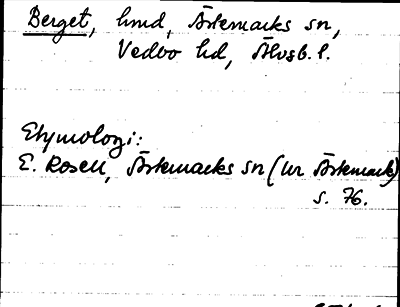 Berget, hmd, Ärtemarks sn,
Vedbo hd, Älvsb. l.
Etymologi:
E. Rosell, Ärtemarks sn (ur Ärtemark)
s. 76.